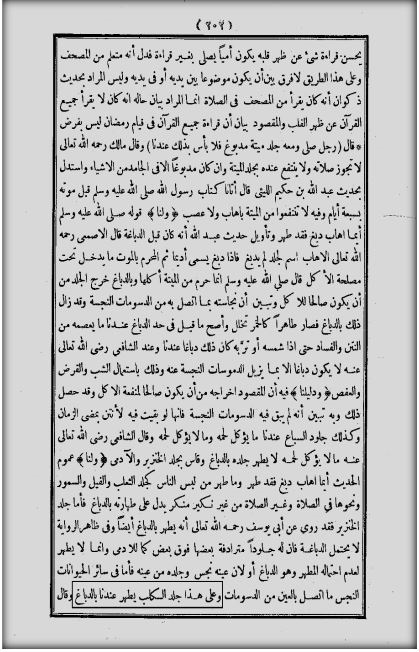 ﴿ ٢٠٢ ﴾
يحسن قراءة شئ عن ظهر قلبه يكون أميا يصلى بغير قراءة فدل أنه متعلم من المصحف
وعلى هذا الطريق لافرق بين أن يكون موضوعا بين يديه أو فى يديه وليس المراد بحديث
ذكوان أنه كان يقرأ من المصحف فى الصلاة انما المراد بيان حاله انه كان لا يقرأ جميع
القرآن عن ظهر القلب والمقصود بيان أن قراءة جميع القرآن فى قيام رمضان ليس بفرض
* قال ( رجل صلى ومعه جلد ميتة مدبوغ فلا بأس بذلك عندنا ) وقال مالك رحمه الله تعالى
لا تجوز صلاته ولا ينتفع عنده بجلد الميتة وان كان مدبوغا الا فى الجامد من الاشياء واستدل
بحديث عبد الله بن حكيم الليثى قال أتانا كتاب رسول الله صلى الله عليه وسلم قبل موته
بسبعة أيام وفيه لا تنتفعوا من الميتة باهاب ولا عصب ﴿ ولنا ﴾ قوله صلى الله عليه وسلم
أيما اهاب دبغ فقد طهر وتأويل حديث عبد الله أنه كان قبل الدباغة قال الاصمعى رحمه
الله تعالى الاهاب اسم لجلد لم يدبغ فاذا دبغ يسمى أديما ثم المحرم بالموت ما يدخل تحت
مصلحة الأكل قال صلى الله عليه وسلم انما حرم من الميتة أكلها وبالدباغ خرج الجلد من
أن يكون صالحا للاكل وتبين أن نجاسته بما اتصل به من الدسومات النجسة وقد زال
ذلك بالدباغ فصار طاهرا كالخمر تخلل وأصح ما قيل فى حد الدباغ عندنا ما يعصمه من
النتن والفساد حتى اذا شمسه أو تربه كان ذلك دباغا عندنا وعند الشافعى رضى الله تعالى
عنه لا يكون دباغا الا بما يزيل الدسومات النجسة عنه وذلك باستعمال الشب والقرض
والعفص ﴿ ودليلنا ﴾ فيه أن المقصود اخراجه من أن يكون صالحا لمنفعة الاكل وقد حصل
ذلك وبه تبين أنه لم يبق فيه الدسومات النجسة فانها لو بقيت فيه لأنتن بمضى الزمان
وكذلك جلود السباع عندنا ما يؤكل لحمه وما لا يؤكل لحمه وقال الشافعى رضى الله تعالى
عنه ما لا يؤكل لحمه لا يطهر جلده بالدباغ وقاس بجلد الخنزير والآدمى ﴿ ولنا ﴾ عموم
الحديث أيما اهاب دبغ فقد طهر وما طهر من لبس الناس كجلد الثعلب والفيل والسمور
ونحوها فى الصلاة وغير الصلاة من غير نكير منكر يدل على طهارته بالدباغ فأما جلد
الخنزير فقد روى عن أبى يوسف رحمه الله تعالى أنه يطهر بالدباغ أيضا وفى ظاهر الرواية
لا يحتمل الدباغة فان له جلودا مترادفة بعضها فوق بعض كما للآدمى وانما لا يطهر
لعدم احتماله المطهر وهو الدباغ أو لان عينه نجس وجلده من عينه فأما فى سائر الحيوانات
النجس ما اتصل بالعين من الدسومات وعلى هذا جلد الكلب يطهر عندنا بالدباغ وقال